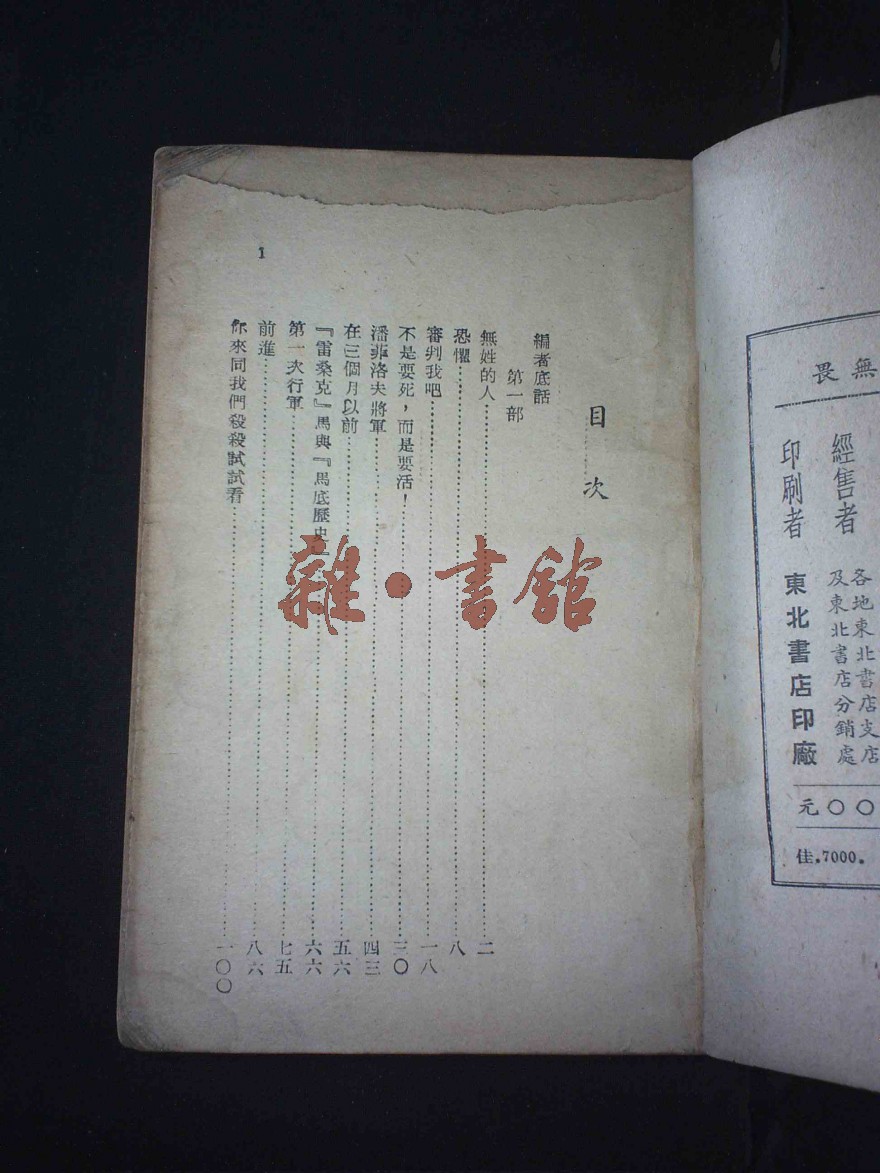 目次
編者底話
第一部
無姓的人……二
恐懼……八
審判我吧……一八
不是要死，而是要活！……三〇
潘菲洛夫將軍……四三
在三個月以前……五六
『雷桑克』馬與『馬底歷史』……六六
第一次行軍……七五
前進……八六
你來同我們殺殺試試看……一〇〇
1
雜·書館
無畏
經售者
各地東北書店支店
及東北書店分銷處
印刷者
東北書店印廠
元〇〇
佳.7000.